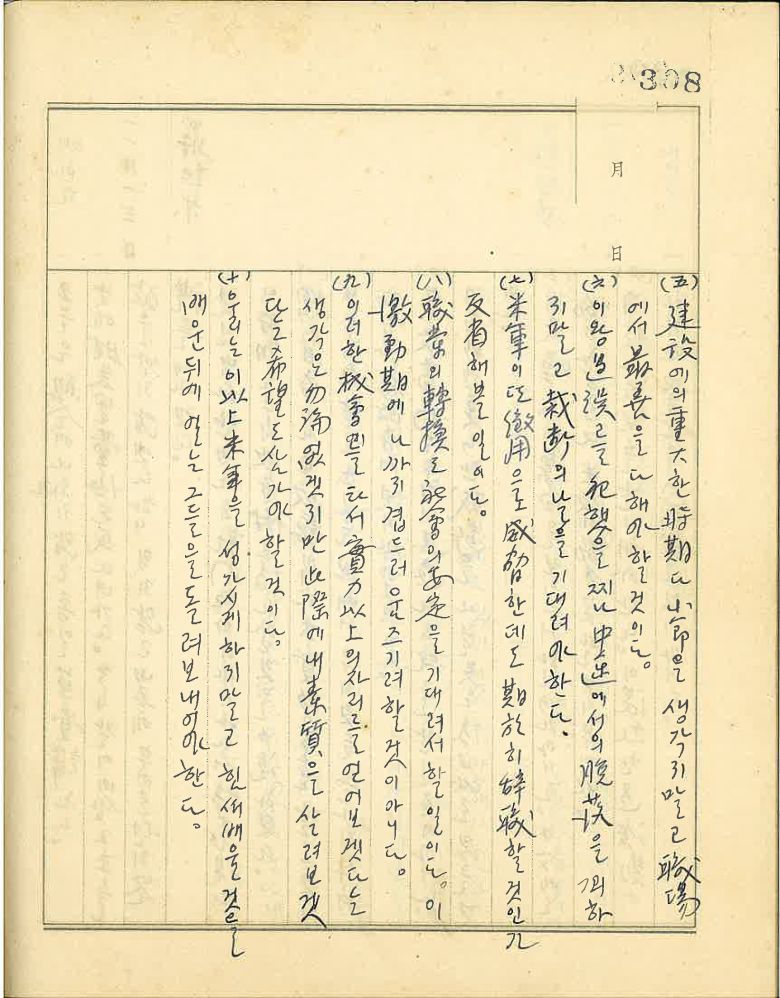 308
月
日
(五) 建設에의 重大한 時期다 小節을 생각지말고 職場
에서 最善을 다해야할것이다。
(六) 이왕 過誤를 犯했을찌나 中途에서의 脫落을 꾀하
지말고 裁斷의날을 기대려야한다。
(七) 米軍이또 徵用으로 威脅한데도 期於히 辞職할것인가
反省해볼일이다。
(八) 職業의 轉換도 社會의 安定을 기대려서할일이다。이
激動期에 나까지 겹드러 움즈기려할것이아니다。
(九) 이러한 機會를타서 實力以上의 자리를 얻어보겠다는
생각은 勿論없겟지만 此際에 내 素質을 살려보겟
단그 希望도 삼가야 할것이다。
(十) 우리는 이以上 米軍을 성가시게 하지말고 힘써배울것을
배운뒤에 얼는 그들을 돌려보내어야한다。